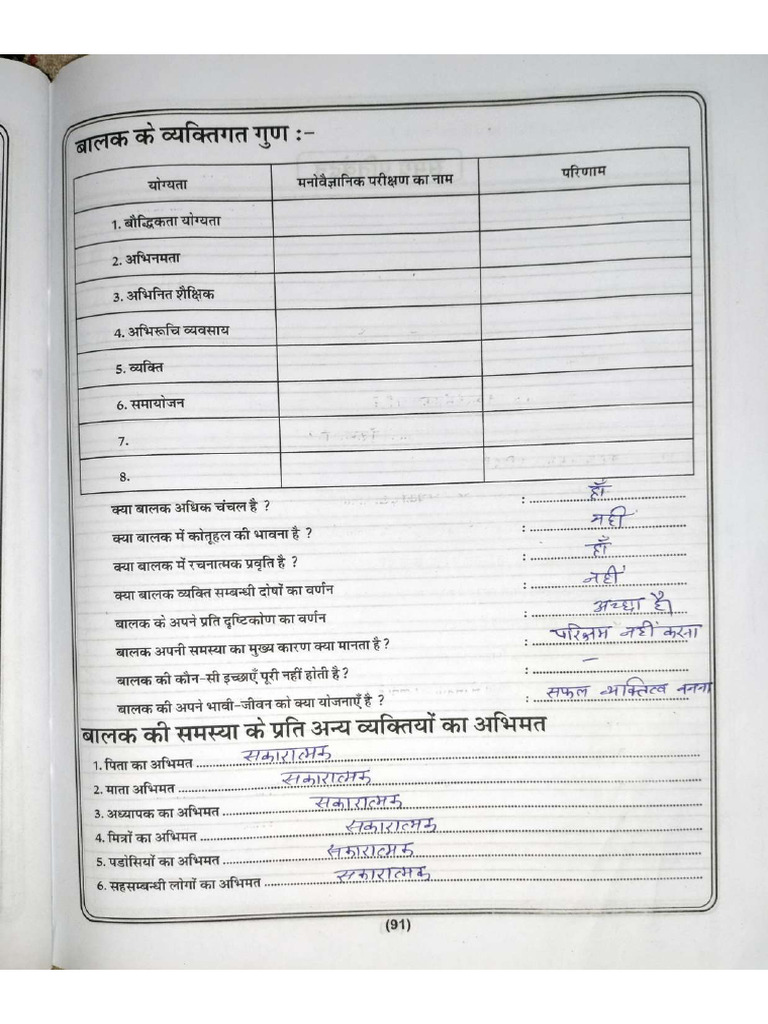 बालक के व्यक्तिगत गुण :-
योग्यता मनोवैज्ञानिक परीक्षण का नाम परिणाम
1. बौद्धिकता योग्यता
2. अभिनमता
3. अभिनित शैक्षिक
4. अभिरूचि व्यवसाय
5. व्यक्ति
6. समायोजन
7.
8.
क्या बालक अधिक चंचल है ? : हाँ
क्या बालक में कोतूहल की भावना है ? : नही
क्या बालक में रचनात्मक प्रवृति है ? : हाँ
क्या बालक व्यक्ति सम्बन्धी दोषों का वर्णन : नहीं
बालक के अपने प्रति दृष्टिकोण का वर्णन : अच्छा है।
बालक अपनी समस्या का मुख्य कारण क्या मानता है ? : परिश्रम नहीं करना
बालक की कौन-सी इच्छाएँ पूरी नहीं होती है ? : –
बालक की अपने भावी-जीवन को क्या योजनाएँ है ? : सफल व्यक्तित्व बनना
बालक की समस्या के प्रति अन्य व्यक्तियों का अभिमत
1. पिता का अभिमत सकारात्मक
2. माता अभिमत सकारात्मक
3. अध्यापक का अभिमत सकारात्मक
4. मित्रों का अभिमत सकारात्मक
5. पडोसियों का अभिमत सकारात्मक
6. सहसम्बन्धी लोगों का अभिमत सकारात्मक
(91)